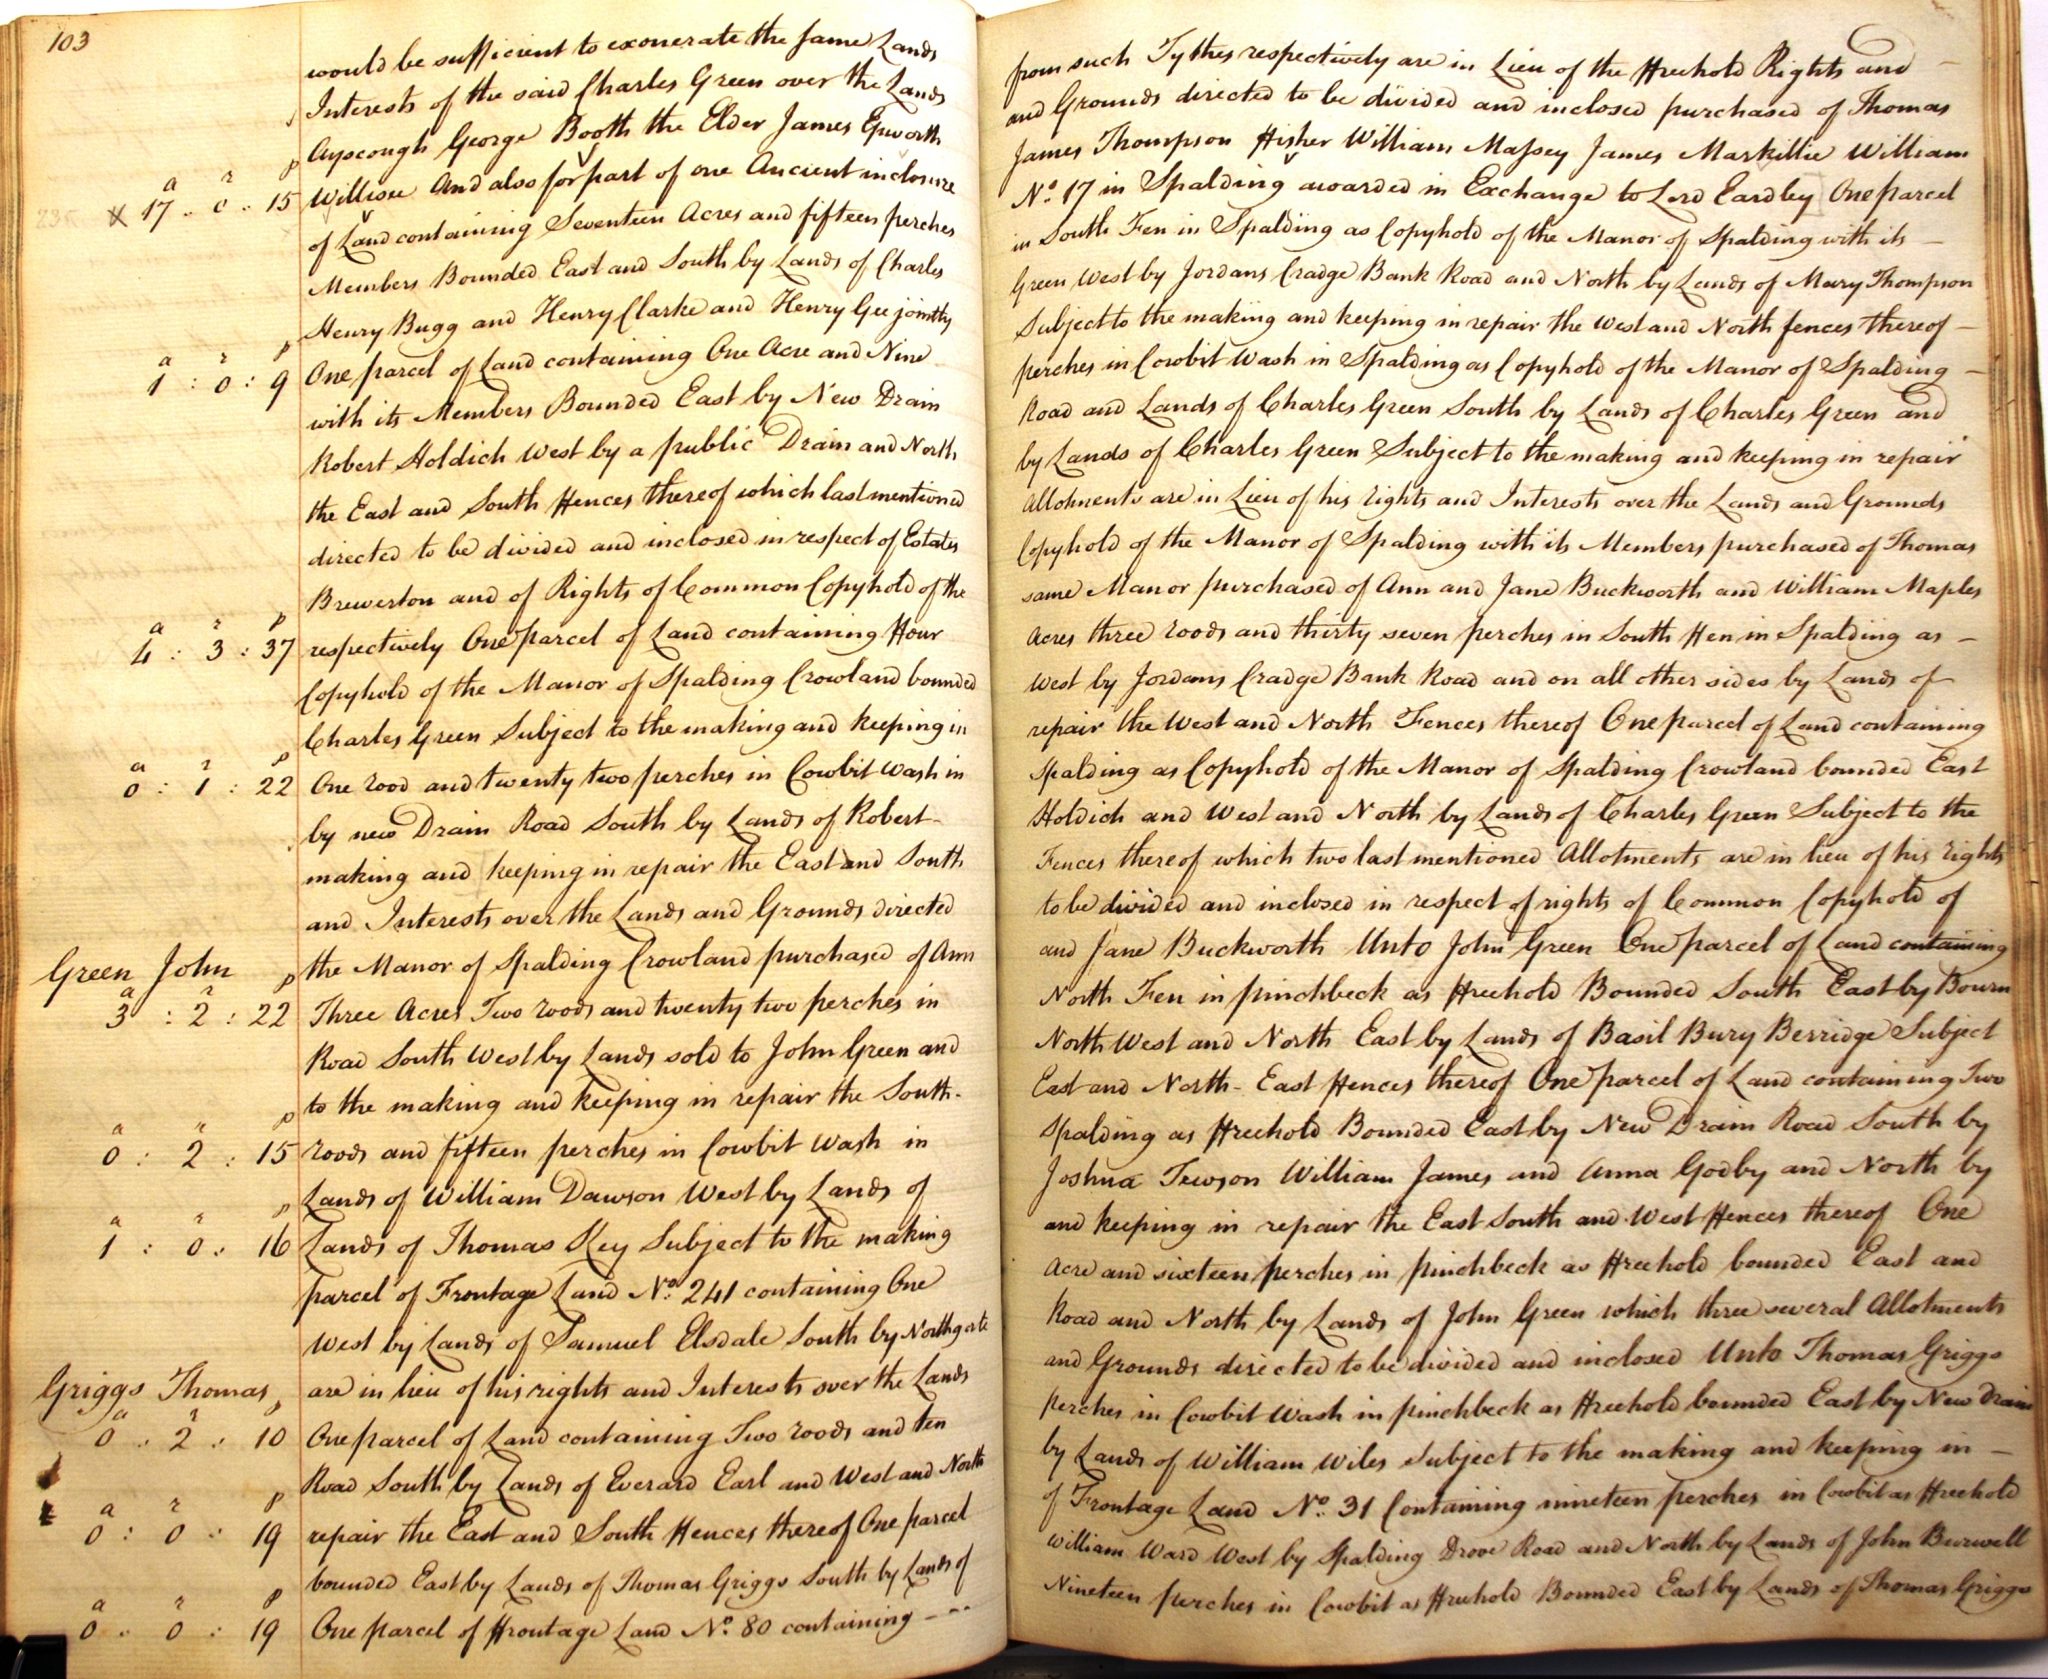 103
would be sufficient to exonerate the same Lands from such Tythes respectively are in Lieu of the Freehold Rights and
Interests of the said Charles Green over the Lands and Grounds directed to be divided and inclosed purchased of Thomas
Ayscough George Booth the Elder James Epworth James Thompson Fisher William Massey James Markillie William
a r p
17 .. 0 .. 15 Willson And also for part of one Ancient inclosure No. 17 in Spalding awarded in Exchange to Lord Eardley One parcel
of Land containing Seventeen Acres and fifteen perches in South Fen in Spalding as Copyhold of the Manor of Spalding with its
Members Bounded East and South by Lands of Charles Green West by Jordans Cradge Bank Road and North by Lands of Mary Thompson
Henry Bugg and Henry Clarke and Henry Gee jointly Subject to the making and keeping in repair the West and North fences thereof
a r p
1 : 0 : 9 One parcel of Land containing One Acre and Nine perches in Cowbit Wash in Spalding as Copyhold of the Manor of Spalding
with its Members Bounded East by New Drain Road and Lands of Charles Green South by Lands of Charles Green and
Robert Holdich West by a public Drain and North by Lands of Charles Green Subject to the making and keeping in repair
the East and South Fences thereof which last mentioned Allotments are in Lieu of his rights and Interests over the Lands and Grounds
directed to be divided and inclosed in respect of Estates Copyhold of the Manor of Spalding with its Members purchased of Thomas
Brewerton and of Rights of Common Copyhold of the same Manor purchased of Ann and Jane Buckworth and William Maples
a r p
4 : 3 : 37 respectively One parcel of Land containing Four Acres three roods and thirty seven perches in South Fen in Spalding as
Copyhold of the Manor of Spalding Crowland bounded West by Jordans Cradge Bank Road and on all other sides by Lands of
Charles Green Subject to the making and keeping in repair the West and North Fences thereof One parcel of Land containing
a r p
0 : 1 : 22 One rood and twenty two perches in Cowbit Wash in Spalding as Copyhold of the Manor of Spalding Crowland bounded East
by new Drain Road South by Lands of Robert Holdich and West and North by Lands of Charles Green Subject to the
making and keeping in repair the East and South Fences thereof which two last mentioned Allotments are in lieu of his rights
and Interests over the Lands and Grounds directed to be divided and inclosed in respect of rights of Common Copyhold of
Green John the Manor of Spalding Crowland purchased of Ann and Jane Buckworth Unto John Green One parcel of Land containing
a r p
3 : 2 : 22 Three Acres Two roods and twenty two perches in North Fen in pinchbeck as Freehold Bounded South East by Bourn
Road South West by Lands sold to John Green and North West and North East by Lands of Basil Bury Berridge Subject
to the making and keeping in repair the South- East and North-East Fences thereof One parcel of Land containing Two
a r p
0 : 2 : 15 roods and fifteen perches in Cowbit Wash in Spalding as Freehold Bounded East by New Drain Road South by
Lands of William Dawson West by Lands of Joshua Tewson William James and Anna Godby and North by
a r p
1 : 0 : 16 Lands of Thomas Key Subject to the making and keeping in repair the East South and West Fences thereof One
parcel of Frontage Land No. 241 containing One Acre and sixteen perches in pinchbeck as Freehold bounded East and
West by Lands of Samuel Elsdale South by Northgate Road and North by Lands of John Green which three several Allotments
Griggs Thomas are in lieu of his rights and Interests over the Lands and Grounds directed to be divided and inclosed Unto Thomas Griggs
a r p
0 : 2 : 10 One parcel of Land containing Two roods and ten perches in Cowbit Wash in pinchbeck as Freehold bounded East by New Drain
Road South by Lands of Everard Earl and West and North by Lands of William Wiles Subject to the making and keeping in
a r p
0 : 0 : 19 repair the East and South Fences thereof One parcel of Frontage Land No. 31 Containing nineteen perches in Cowbit as Freehold
bounded East by Lands of Thomas Griggs South by Lands of William Ward West by Spalding Drove Road and North by Lands of John Burwell
a r p
0 : 0 : 19 One parcel of Frontage Land No. 80 containing Nineteen perches in Cowbit as Freehold Bounded East by Lands of Thomas Griggs